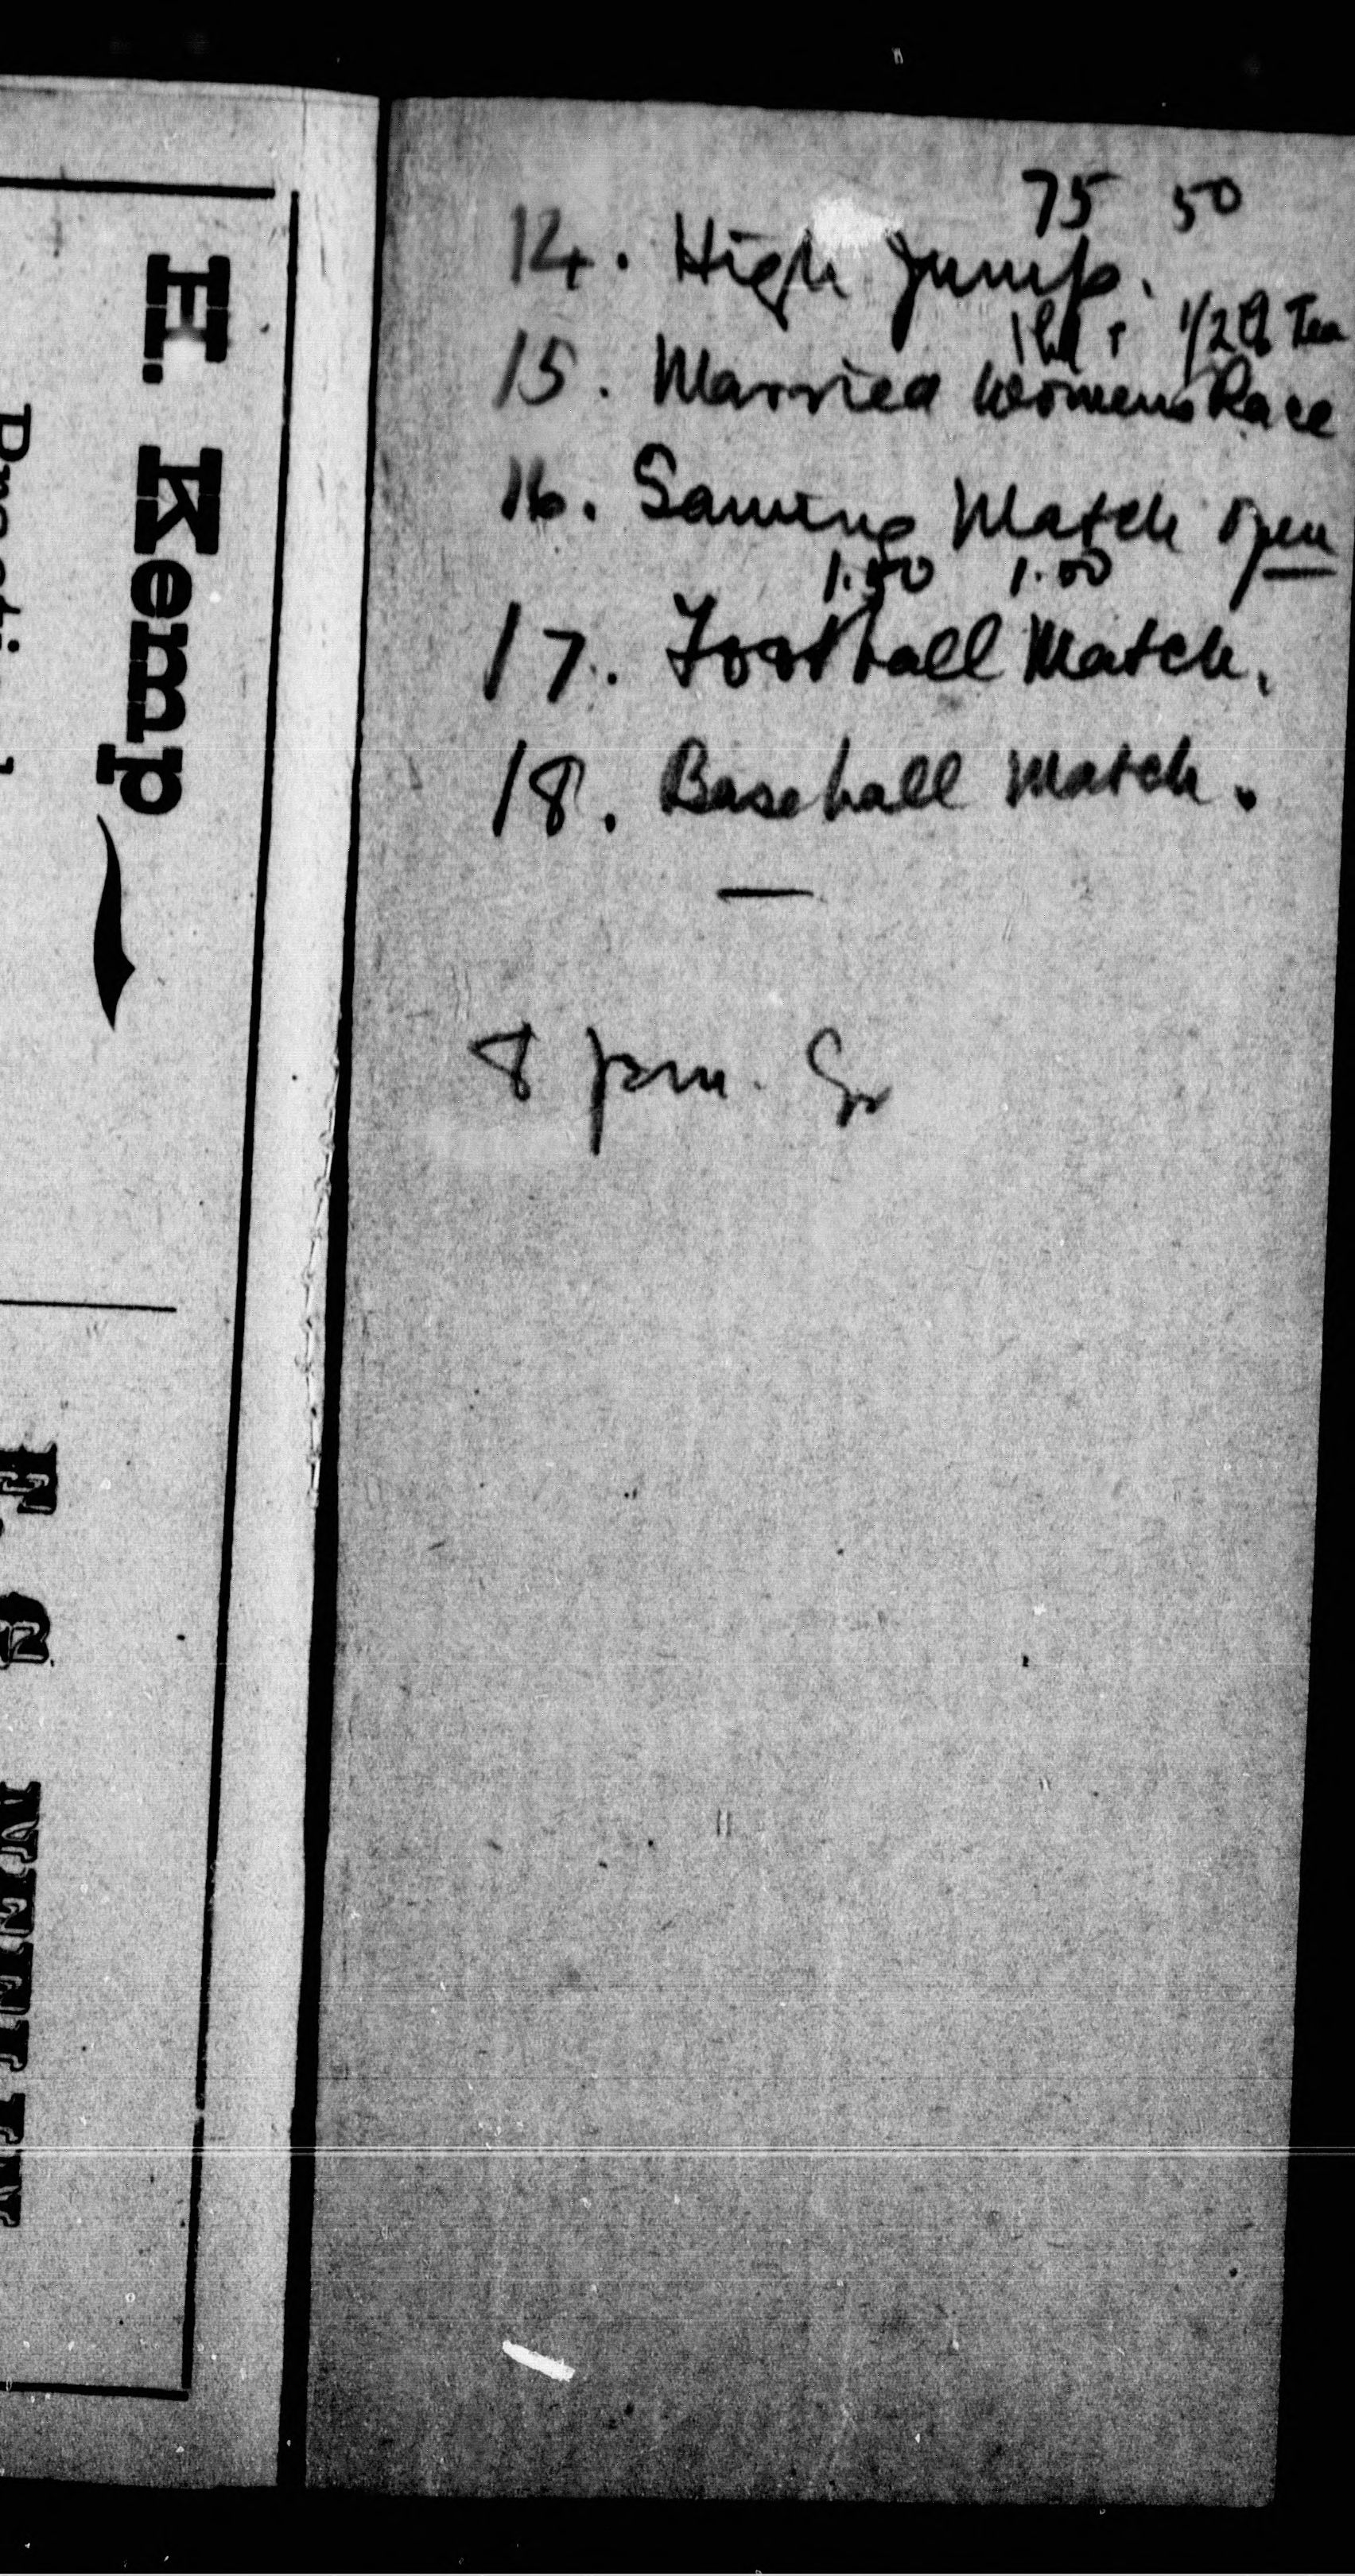 E. Kemp
75 50
14. High Jump.
1 lb & 1/2 lb Tea
15. Married Womens Race
16. Sawing Match open
1.50 1.00
17. Football Match.
18. Baseball Match.
8 pm.